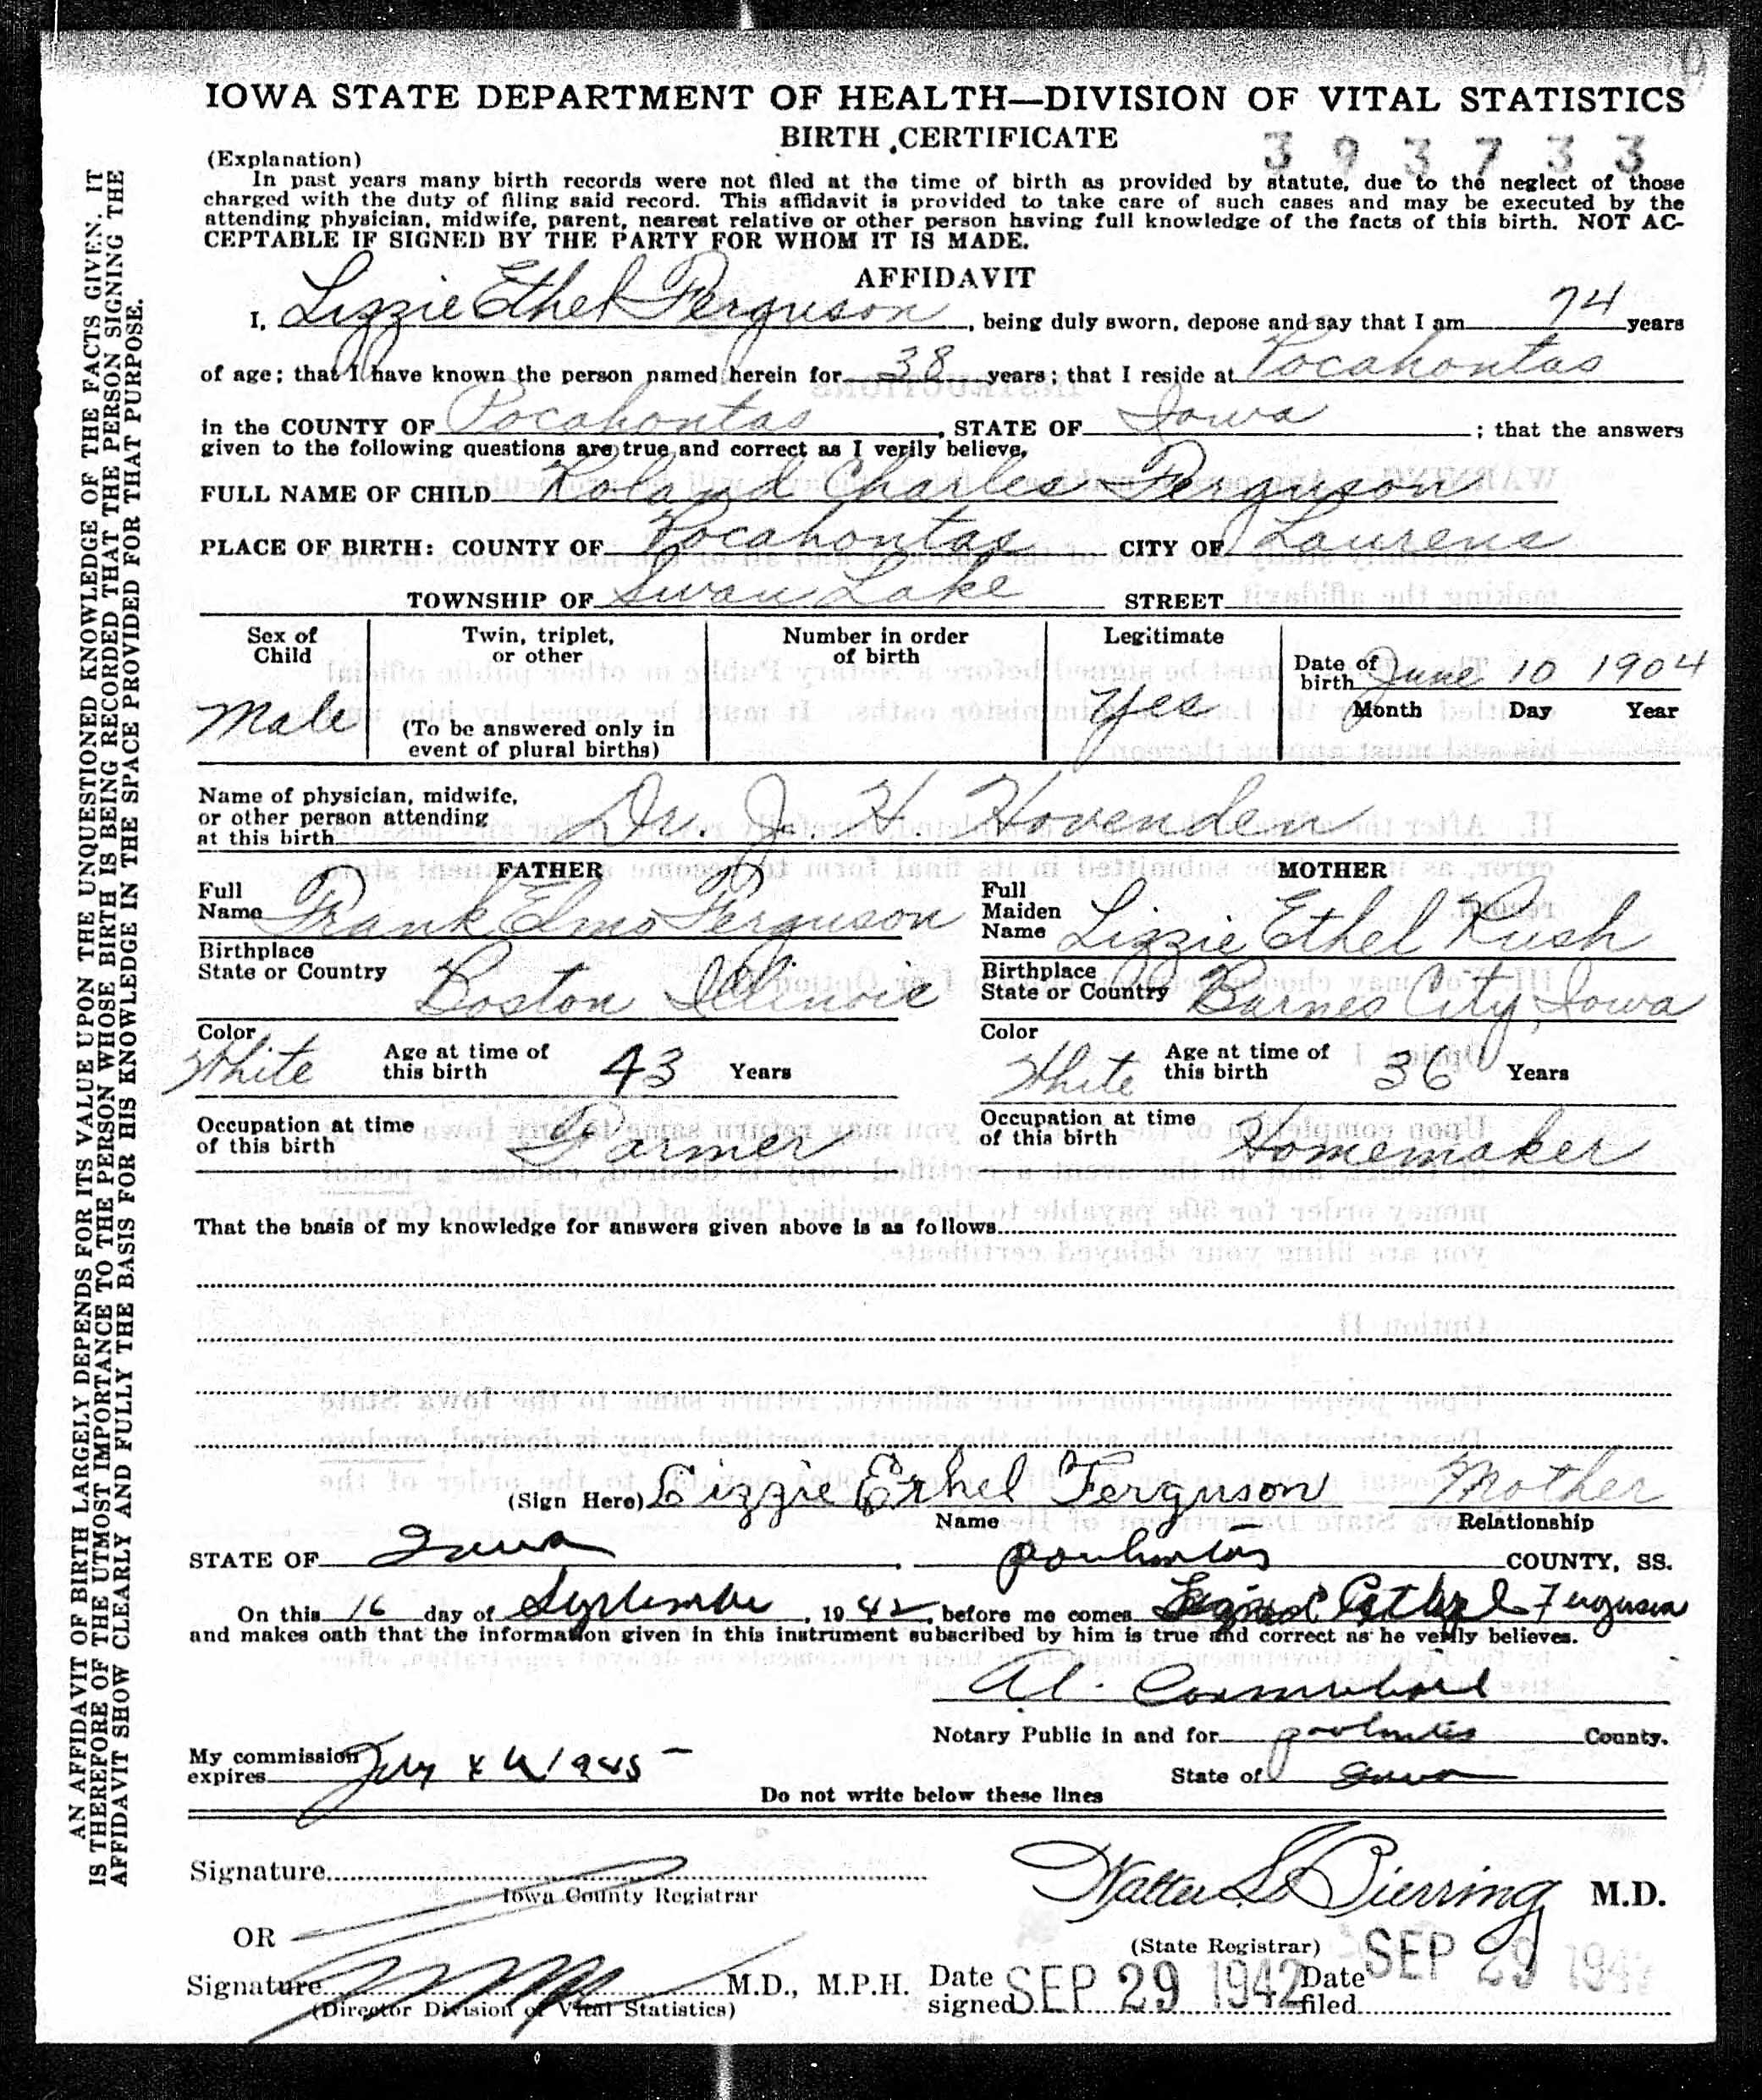 IOWA STATE DEPARTMENT OF HEALTH—DIVISION OF VITAL STATISTICS
BIRTH CERTIFICATE
393733
(Explanation)
In past years many birth records were not filed at the time of birth as provided by statute, due to the neglect of those
charged with the duty of filing said record. This affidavit is provided to take care of such cases and may be executed by the
attending physician, midwife, parent, nearest relative or other person having full knowledge of the facts of this birth. NOT AC-
CEPTABLE IF SIGNED BY THE PARTY FOR WHOM IT IS MADE.
AFFIDAVIT
I, Lizzie Ethel Ferguson, being duly sworn, depose and say that I am 74 years
of age; that I have known the person named herein for 38 years; that I reside at Pocahontas
in the COUNTY OF Pocahontas, STATE OF Iowa; that the answers
given to the following questions are true and correct as I verily believe,
FULL NAME OF CHILD Roland Charles Ferguson
PLACE OF BIRTH: COUNTY OF Pocahontas CITY OF Laurens
TOWNSHIP OF Swan Lake STREET
Sex of Child Male
Twin, triplet, or other
(To be answered only in event of plural births)
Number in order of birth
Legitimate Yes
Date of birth June 10 1904
Month Day Year
Name of physician, midwife,
or other person attending
at this birth Dr. J. H. Hovenden
FATHER
Full Name Frank Elmo Ferguson
Birthplace
State or Country Boston Illinois
Color White Age at time of this birth 43 Years
Occupation at time of this birth Farmer
MOTHER
Full Maiden Name Lizzie Ethel Rush
Birthplace
State or Country Barnes City, Iowa
Color White Age at time of this birth 36 Years
Occupation at time of this birth Homemaker
That the basis of my knowledge for answers given above is as follows
(Sign Here) Lizzie Ethel Ferguson Mother
Name Relationship
STATE OF Iowa, Pocahontas COUNTY, SS.
On this 16 day of September, 1942, before me comes Ethel Ferguson
and makes oath that the information given in this instrument subscribed by him is true and correct as he verily believes.
Al.
Notary Public in and for Pocahontas County.
My commission expires July 4 1945 State of Iowa
Do not write below these lines
Signature
Iowa County Registrar
OR
Walter L Bierring M.D.
(State Registrar)
Signature M.D., M.P.H.
(Director Division of Vital Statistics)
Date signed SEP 29 1942 Date filed SEP 29 1942
AN AFFIDAVIT OF BIRTH LARGELY DEPENDS FOR ITS VALUE UPON THE UNQUESTIONED KNOWLEDGE OF THE FACTS GIVEN. IT
IS THEREFORE OF THE UTMOST IMPORTANCE TO THE PERSON WHOSE BIRTH IS BEING RECORDED THAT THE PERSON SIGNING THE
AFFIDAVIT SHOW CLEARLY AND FULLY THE BASIS FOR HIS KNOWLEDGE IN THE SPACE PROVIDED FOR THAT PURPOSE.